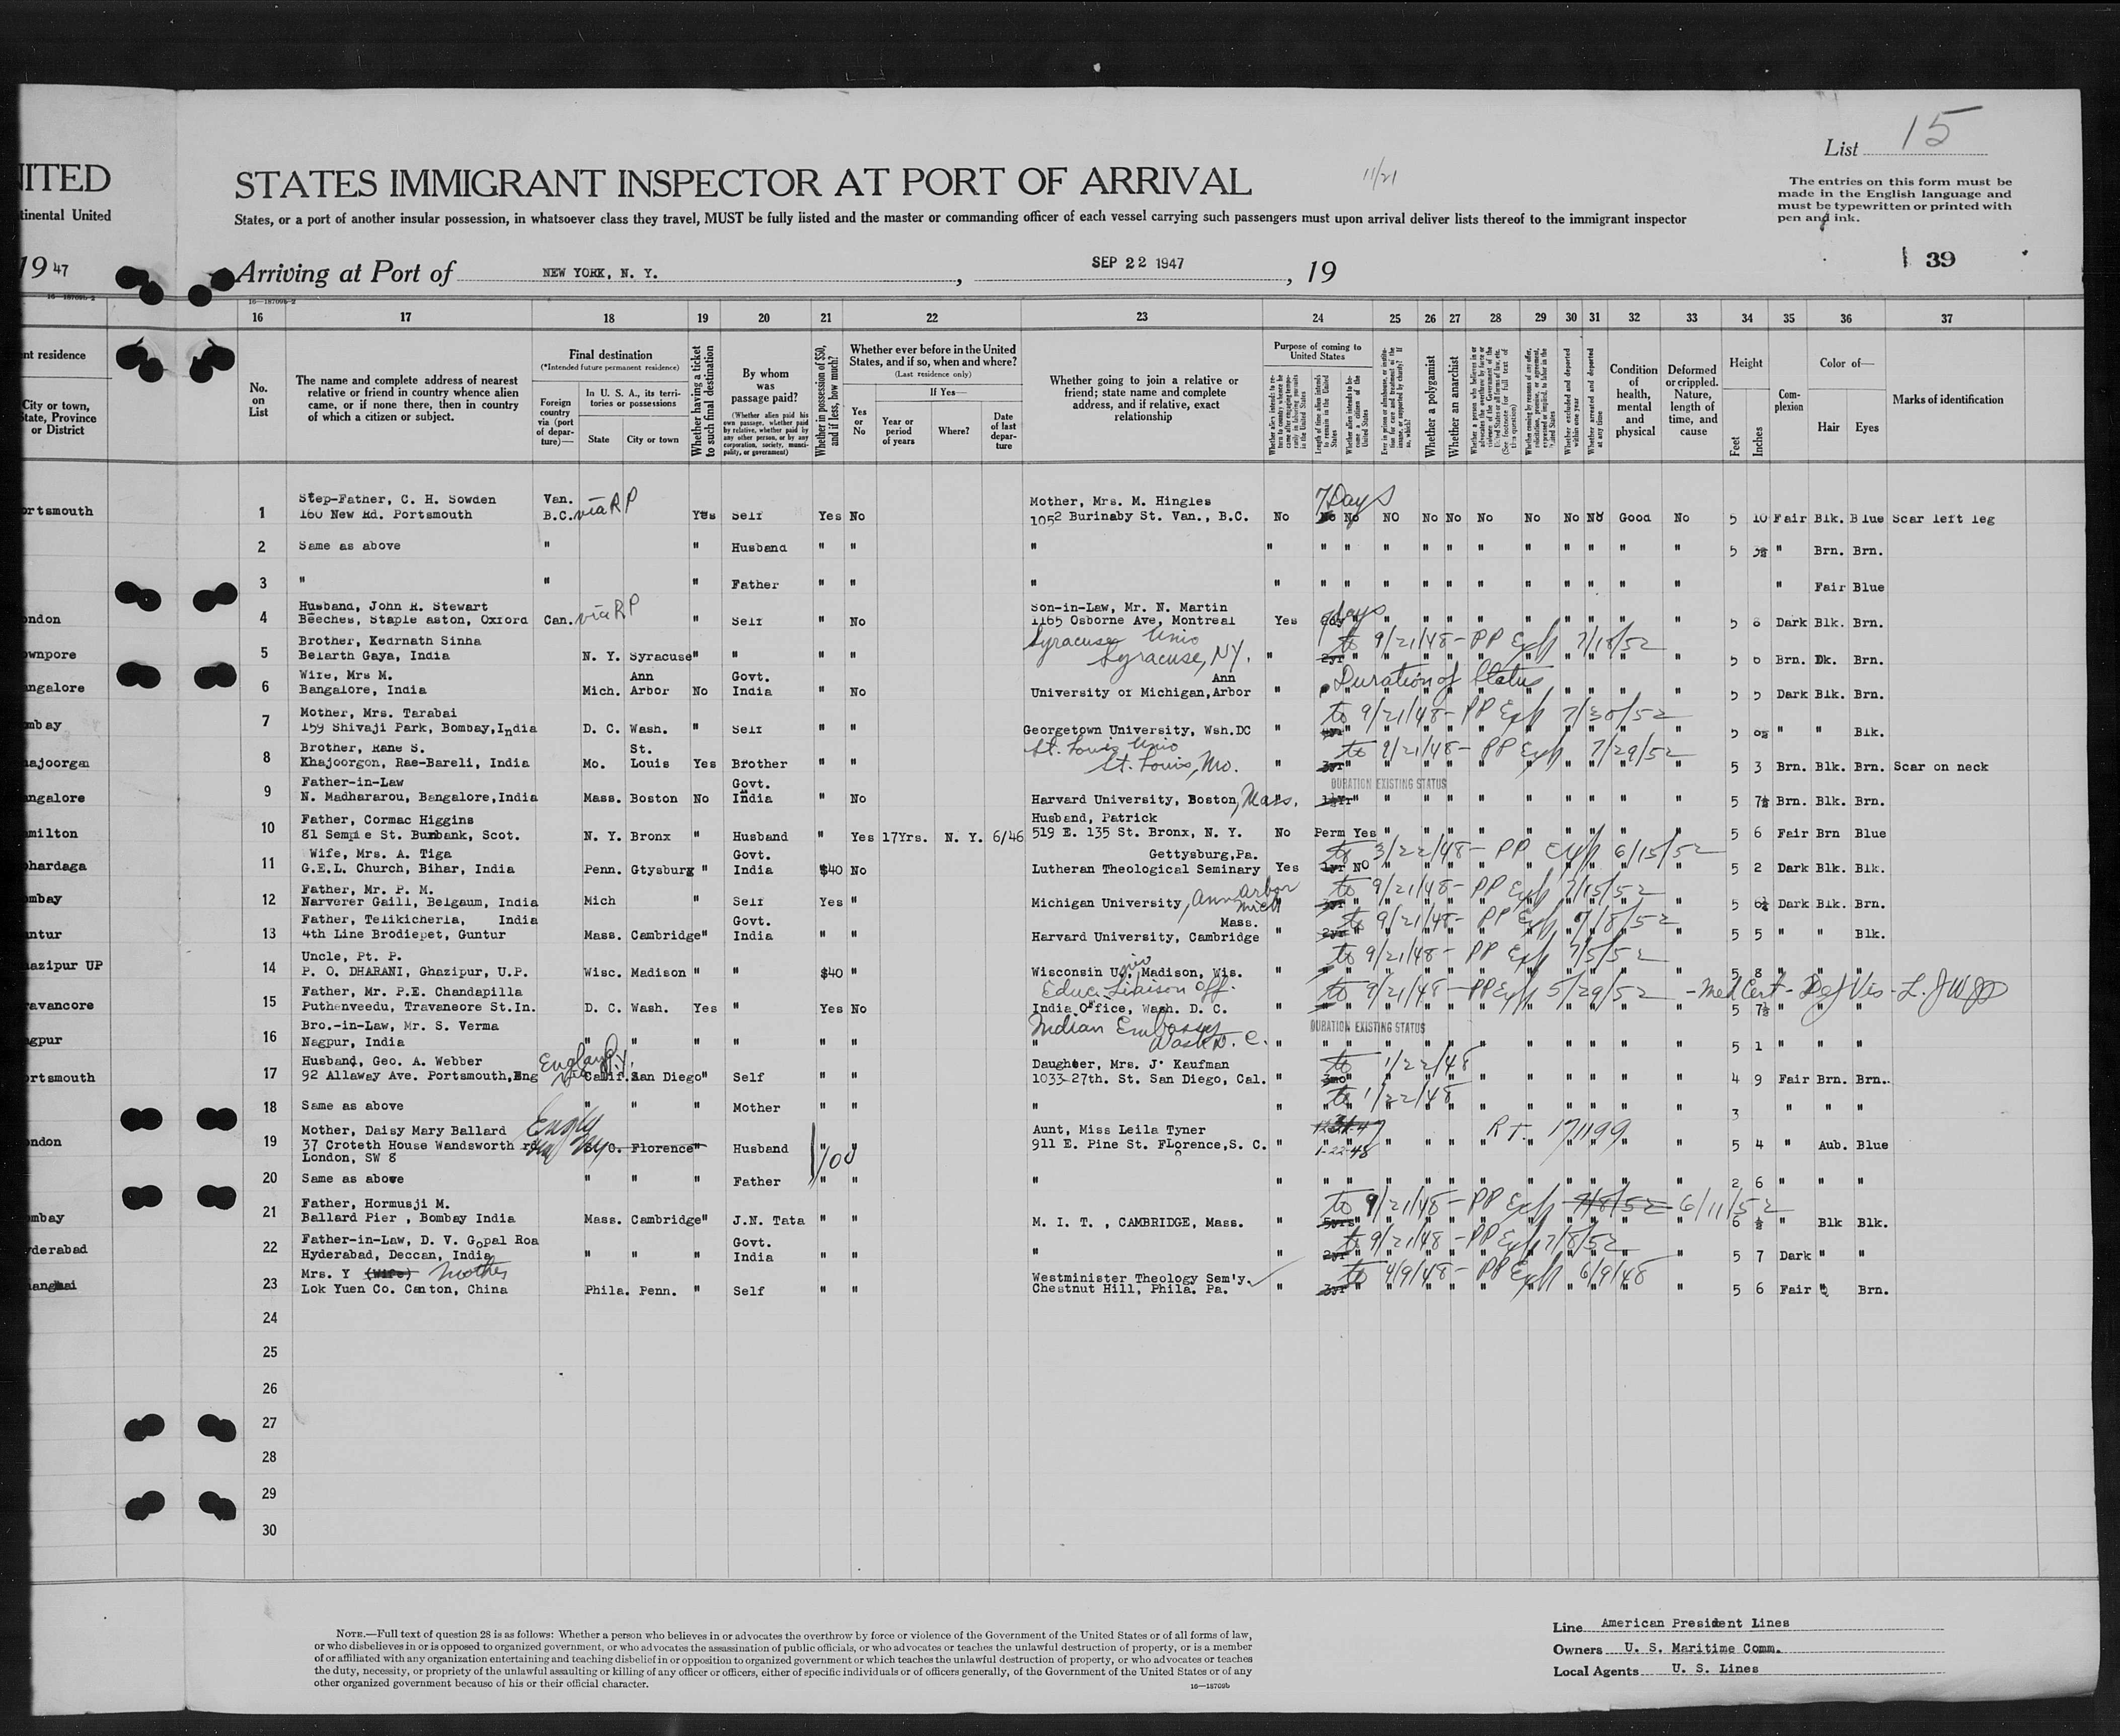 List 15
NITED STATES IMMIGRANT INSPECTOR AT PORT OF ARRIVAL
11/21
The entries on this form must be
made in the English language and
must be typewritten or printed with
pen and ink.
tinental United States, or a port of another insular possession, in whatsoever class they travel, MUST be fully listed and the master or commanding officer of each vessel carrying such passengers must upon arrival deliver lists thereof to the immigrant inspector
1947 Arriving at Port of NEW YORK, N. Y., SEP 22 1947, 19
39
16—18709b-2 16—18709b-2
16 17 18 19 20 21 22 23 24 25 26 27 28 29 30 31 32 33 34 35 36 37
nt residence
City or town,
State, Province
or District
No.
on
List
The name and complete address of nearest
relative or friend in country whence alien
came, or if none there, then in country
of which a citizen or subject.
Final destination
(*Intended future permanent residence)
Foreign
country
via (port
of depar-
ture)—
In U. S. A., its terri-
tories or possessions
State City or town
Whether having a ticket
to such final destination
By whom
was
passage paid?
(Whether alien paid his
own passage, whether paid
by relative, whether paid by
any other person, or by any
corporation, society, munici-
pality, or government)
Whether in possession of $50,
and if less, how much?
Whether ever before in the United
States, and if so, when and where?
(Last residence only)
Yes
or
No
If Yes—
Year or
period
of years
Where?
Date
of last
depar-
ture
Whether going to join a relative or
friend; state name and complete
address, and if relative, exact
relationship
Purpose of coming to
United States
Whether a polygamist
Whether an anarchist
Condition
of
health,
mental
and
physical
Deformed
or crippled.
Nature,
length of
time, and
cause
Height
Feet
Inches
Com-
plexion
Color of—
Hair Eyes
Marks of identification
Step-Father, C. H. Sowden Van. Mother, Mrs. M. Hingles 7 Days
ortsmouth 1 160 New Rd. Portsmouth B.C. via RP Yes Self Yes No 1052 Burinaby St. Van., B.C. No No No NO No No No No No No Good No 5 10 Fair Blk. Blue Scar left leg
2 Same as above " " Husband " " " " " " " " " " " " " " " " 5 " Brn. Brn.
3 " " " Father " " " " " " " " " " " " " " " " " Fair Blue
Husband, John R. Stewart Son-in-Law, Mr. N. Martin days
ondon 4 Beeches, Staple aston, Oxford Can. via RP " Self " No 1165 Osborne Ave, Montreal Yes 5 Dark Blk. Brn.
Brother, Kedrnath Sinha Syracuse Univ to 9/21/48 - PP Exp 7/18/52
wnpore 5 Belarth Gaya, India N. Y. Syracuse " " " " Syracuse, NY. " 2yr 5 Brn. Dk. Brn.
Wife, Mrs M. Ann Govt. Ann Duration of Status
angalore 6 Bangalore, India Mich. Arbor No India " No University of Michigan, Arbor " 5 5 Dark Blk. Brn.
Mother, Mrs. Tarabai to 9/21/48 - PP Exp 7/30/52
mbay 7 159 Shivaji Park, Bombay, India D. C. Wash. " Self " " Georgetown University, Wsh.DC " 5 " " Blk.
Brother, Rane S. St. St. Louis Univ to 9/21/48 - PP Exp 7/29/52
hajoorgan 8 Khajoorgon, Rae-Bareli, India Mo. Louis Yes Brother " " St. Louis, Mo. " 3yr 5 3 Brn. Blk. Brn. Scar on neck
Father-in-Law Govt. DURATION EXISTING STATUS
angalore 9 N. Madhararou, Bangalore, India Mass. Boston No India " No Harvard University, Boston, Mass. " 1½Yr 5 7½ Brn. Blk. Brn.
Father, Cormac Higgins Husband, Patrick
milton 10 81 Semple St. Burnbank, Scot. N. Y. Bronx " Husband " Yes 17Yrs. N. Y. 6/46 519 E. 135 St. Bronx, N. Y. No Perm Yes " " " " " " " " " 5 6 Fair Brn Blue
Wife, Mrs. A. Tiga Govt. Gettysburg, Pa. to 3/22/48 - PP Exp 6/15/52
ohardaga 11 G.E.L. Church, Bihar, India Penn. Gtysburg " India $40 No Lutheran Theological Seminary Yes 1yr NO 5 2 Dark Blk. Blk.
Father, Mr. P. M. to 9/21/48 - PP Exp 7/15/52
mbay 12 Narverer Galli, Belgaum, India Mich " Self Yes " Michigan University, Ann Arbor Mich " 3yr 5 6½ Dark Blk. Brn.
Father, Telikicherla, India Govt. Mass. to 9/21/48 - PP Exp 7/8/52
untur 13 4th Line Brodiepet, Guntur Mass. Cambridge " India " " Harvard University, Cambridge " 2yr 5 5 " " Blk.
Uncle, Pt. P. to 9/21/48 - PP Exp 7/5/52
hazipur UP 14 P. O. DHARANI, Ghazipur, U.P. Wisc. Madison " " $40 " Wisconsin Univ, Madison, Wis. " 5 8 " " "
Father, Mr. P.E. Chandapilla Educ. Liaison Off. to 9/21/48 - PP Exp 5/29/52 - Med Cert - Def Vis -
ravancore 15 Puthenveedu, Travancore St.In. D. C. Wash. Yes " Yes No India Office, Wash. D. C. " 5 7½ " " "
Bro.-in-Law, Mr. S. Verma Indian Embassy DURATION EXISTING STATUS
agpur 16 Nagpur, India " " " " " " " Wash D. C. " 5 1 " " "
Husband, Geo. A. Webber England Daughter, Mrs. J. Kaufman to 1/22/48
ortsmouth 17 92 Allaway Ave. Portsmouth, Eng via N.Y. Calif. San Diego " Self " " 1033-27th. St. San Diego, Cal. " 3mo 4 9 Fair Brn. Brn.
18 Same as above " " " Mother " " " " to 1/22/48 3 " " "
Mother, Daisy Mary Ballard Aunt, Miss Leila Tyner RT. 171199
ondon 19 37 Croteth House Wandsworth rd Florence " Husband " 100 " 911 E. Pine St. Florence, S. C. " 1-22-48 5 4 " Aub. Blue
London, SW 8
20 Same as above " " " Father " " " " 2 6 " " "
Father, Hormusji M. to 9/21/48 - PP Exp 9/8/52 6/11/52
mbay 21 Ballard Pier , Bombay India Mass. Cambridge " J.N. Tata " " M. I. T. , CAMBRIDGE, Mass. " 5yrs 6 ½ " Blk Blk.
Father-in-Law, D. V. Gopal Roa Govt. to 9/21/48 - PP Exp 7/8/52
yderabad 22 Hyderabad, Deccan, India " " " India " " " " 2yr 5 7 Dark " "
Mrs. Y (Wife) Mother Westminister Theology Sem'y. to 4/9/48 - PP Exp 6/9/48
hanghai 23 Lok Yuen Co. Canton, China Phila. Penn. " Self " " Chestnut Hill, Phila. Pa. " 3yr 5 6 Fair " Brn.
24
25
26
27
28
29
30
NOTE.—Full text of question 28 is as follows: Whether a person who believes in or advocates the overthrow by force or violence of the Government of the United States or of all forms of law,
or who disbelieves in or is opposed to organized government, or who advocates the assassination of public officials, or who advocates or teaches the unlawful destruction of property, or is a member
of or affiliated with any organization entertaining and teaching disbelief in or opposition to organized government or which teaches the unlawful destruction of property, or who advocates or teaches
the duty, necessity, or propriety of the unlawful assaulting or killing of any officer or officers, either of specific individuals or of officers generally, of the Government of the United States or of any
other organized government because of his or their official character.
16—18709b
Line American President Lines
Owners U. S. Maritime Comm.
Local Agents U. S. Lines